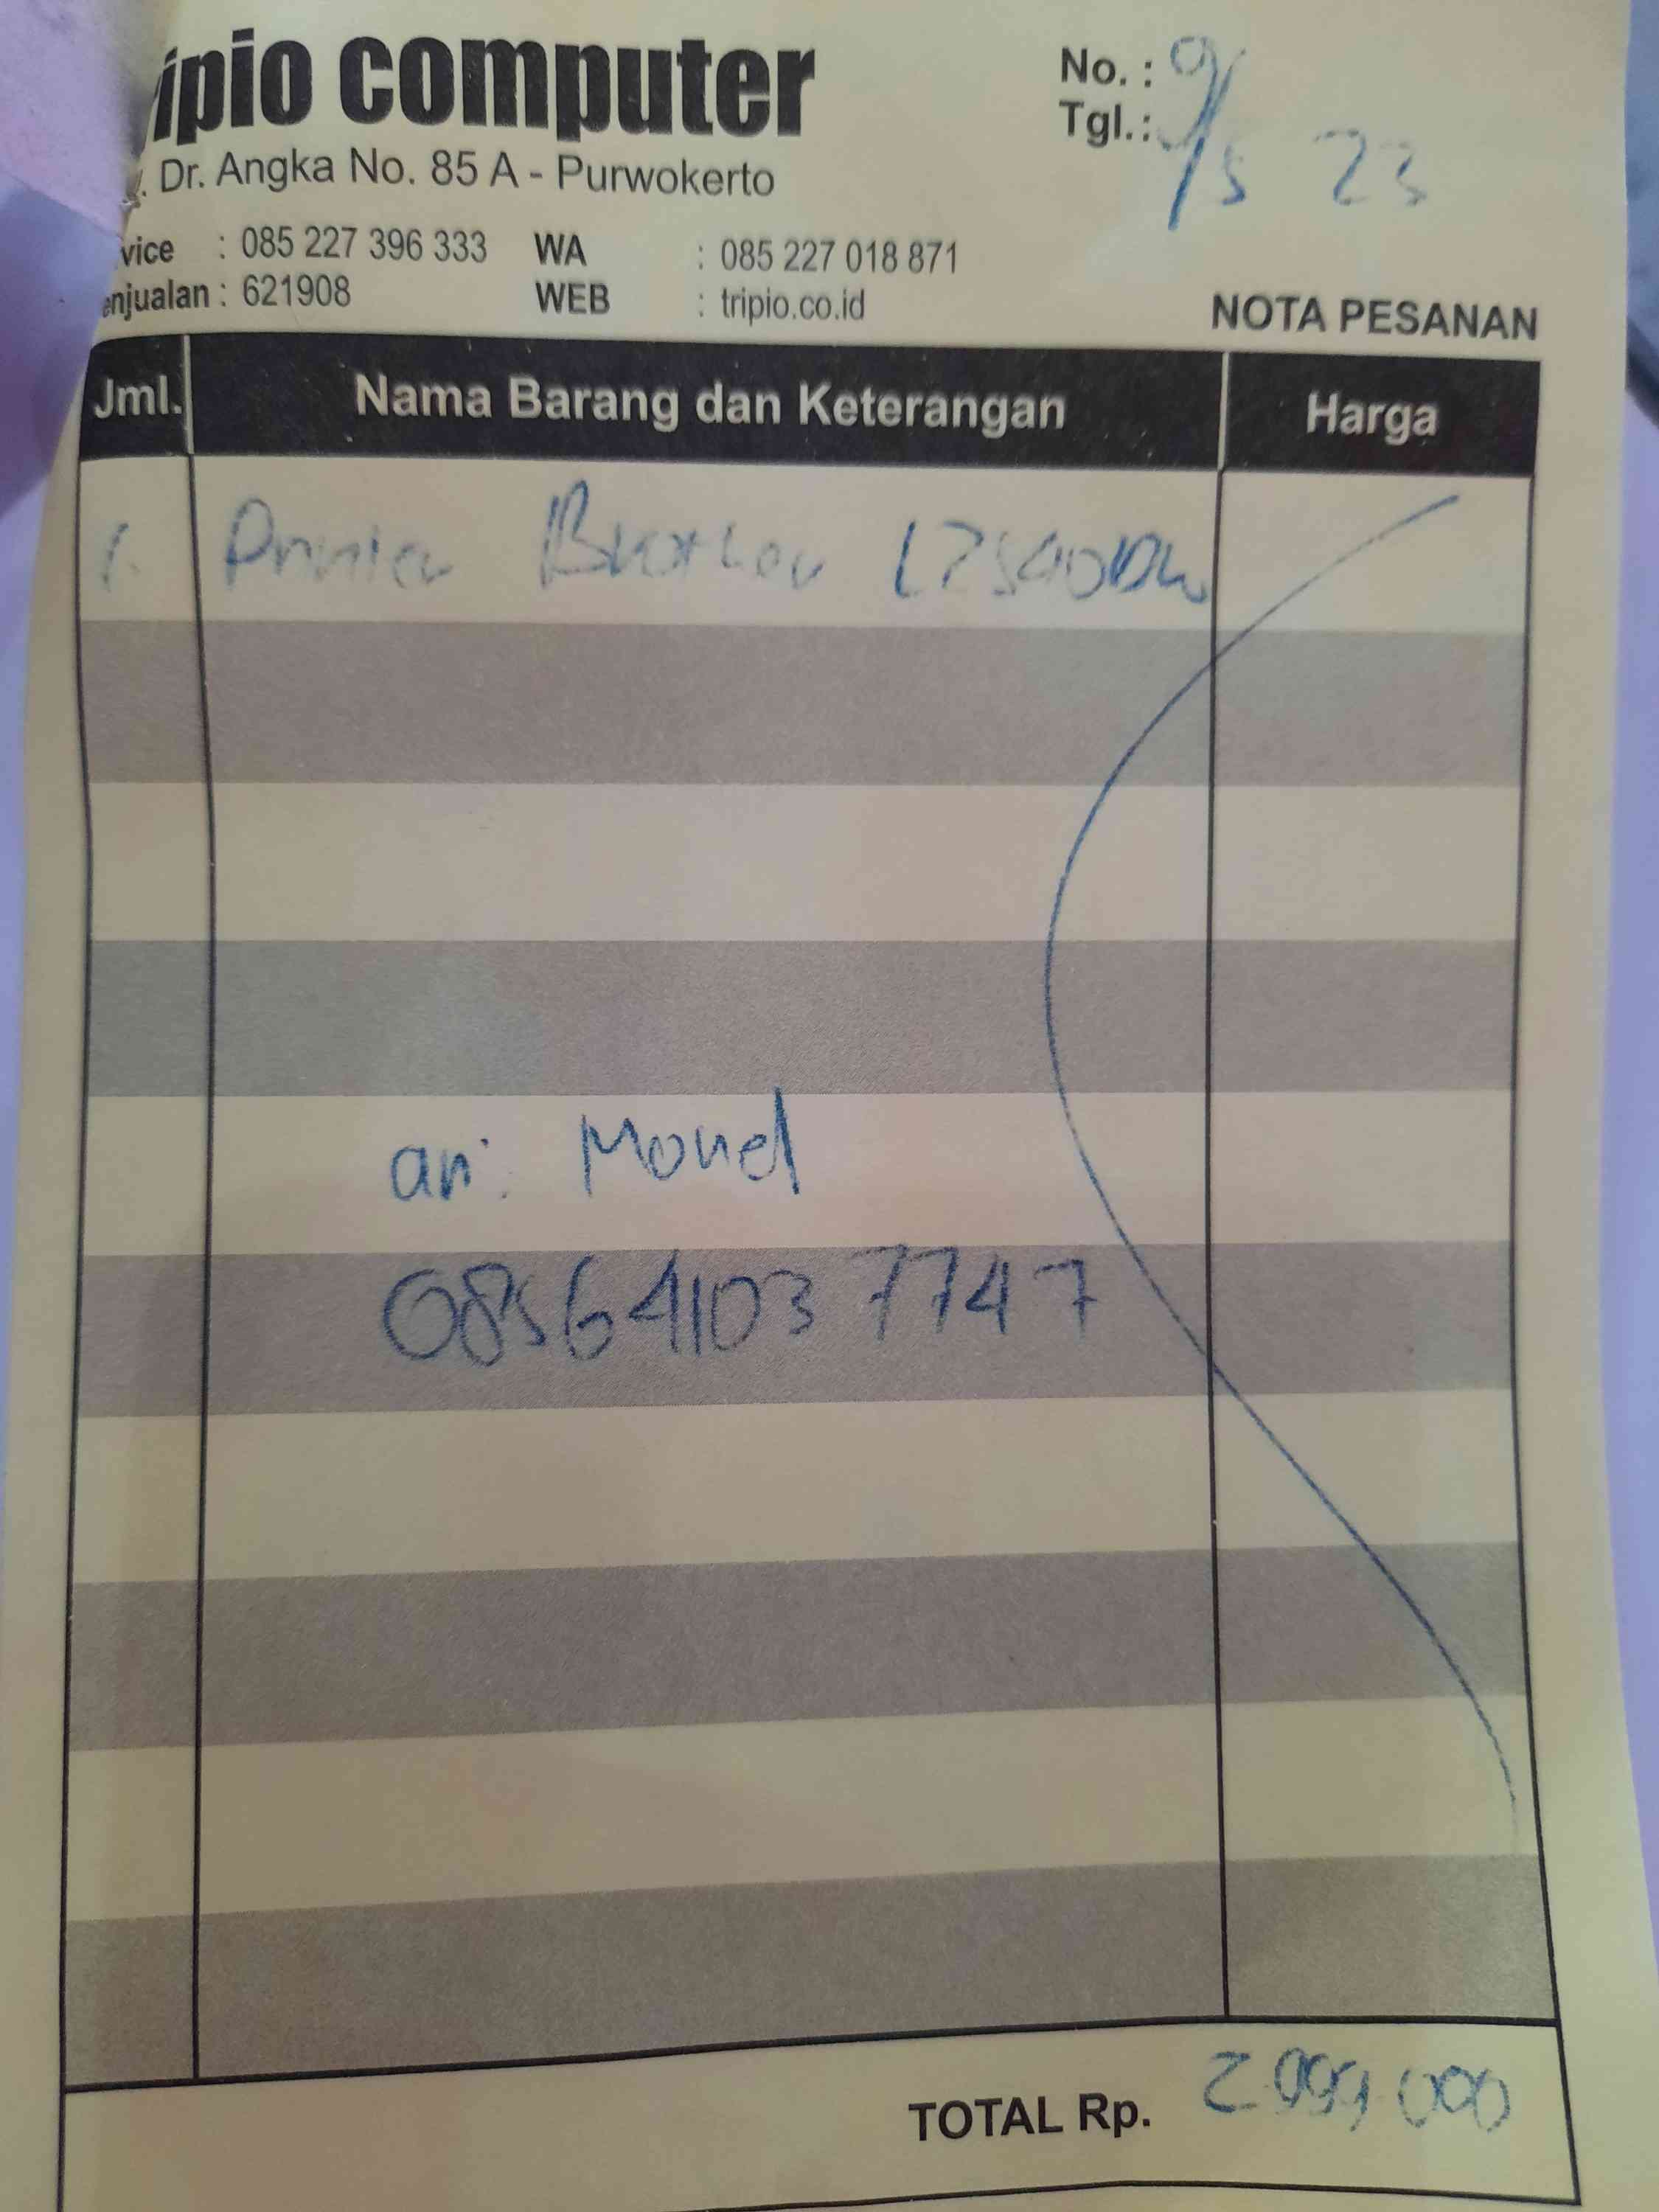 ipio computer
. Dr. Angka No. 85 A - Purwokerto
vice : 085 227 396 333 WA : 085 227 018 871
enjualan : 621908 WEB : tripio.co.id
No. :
Tgl.: 9/5 23
NOTA PESANAN
Jml. Nama Barang dan Keterangan Harga
1. Printer Brother L2540DW
an: Monel
085641037747
TOTAL Rp. 2.999.000